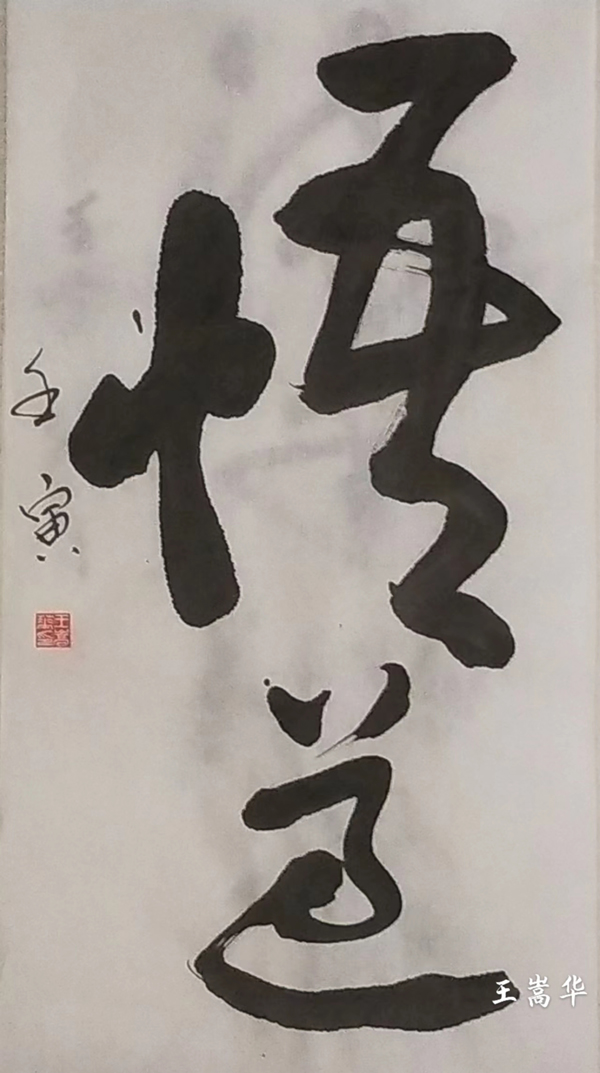 悟道
壬寅
王嵩华